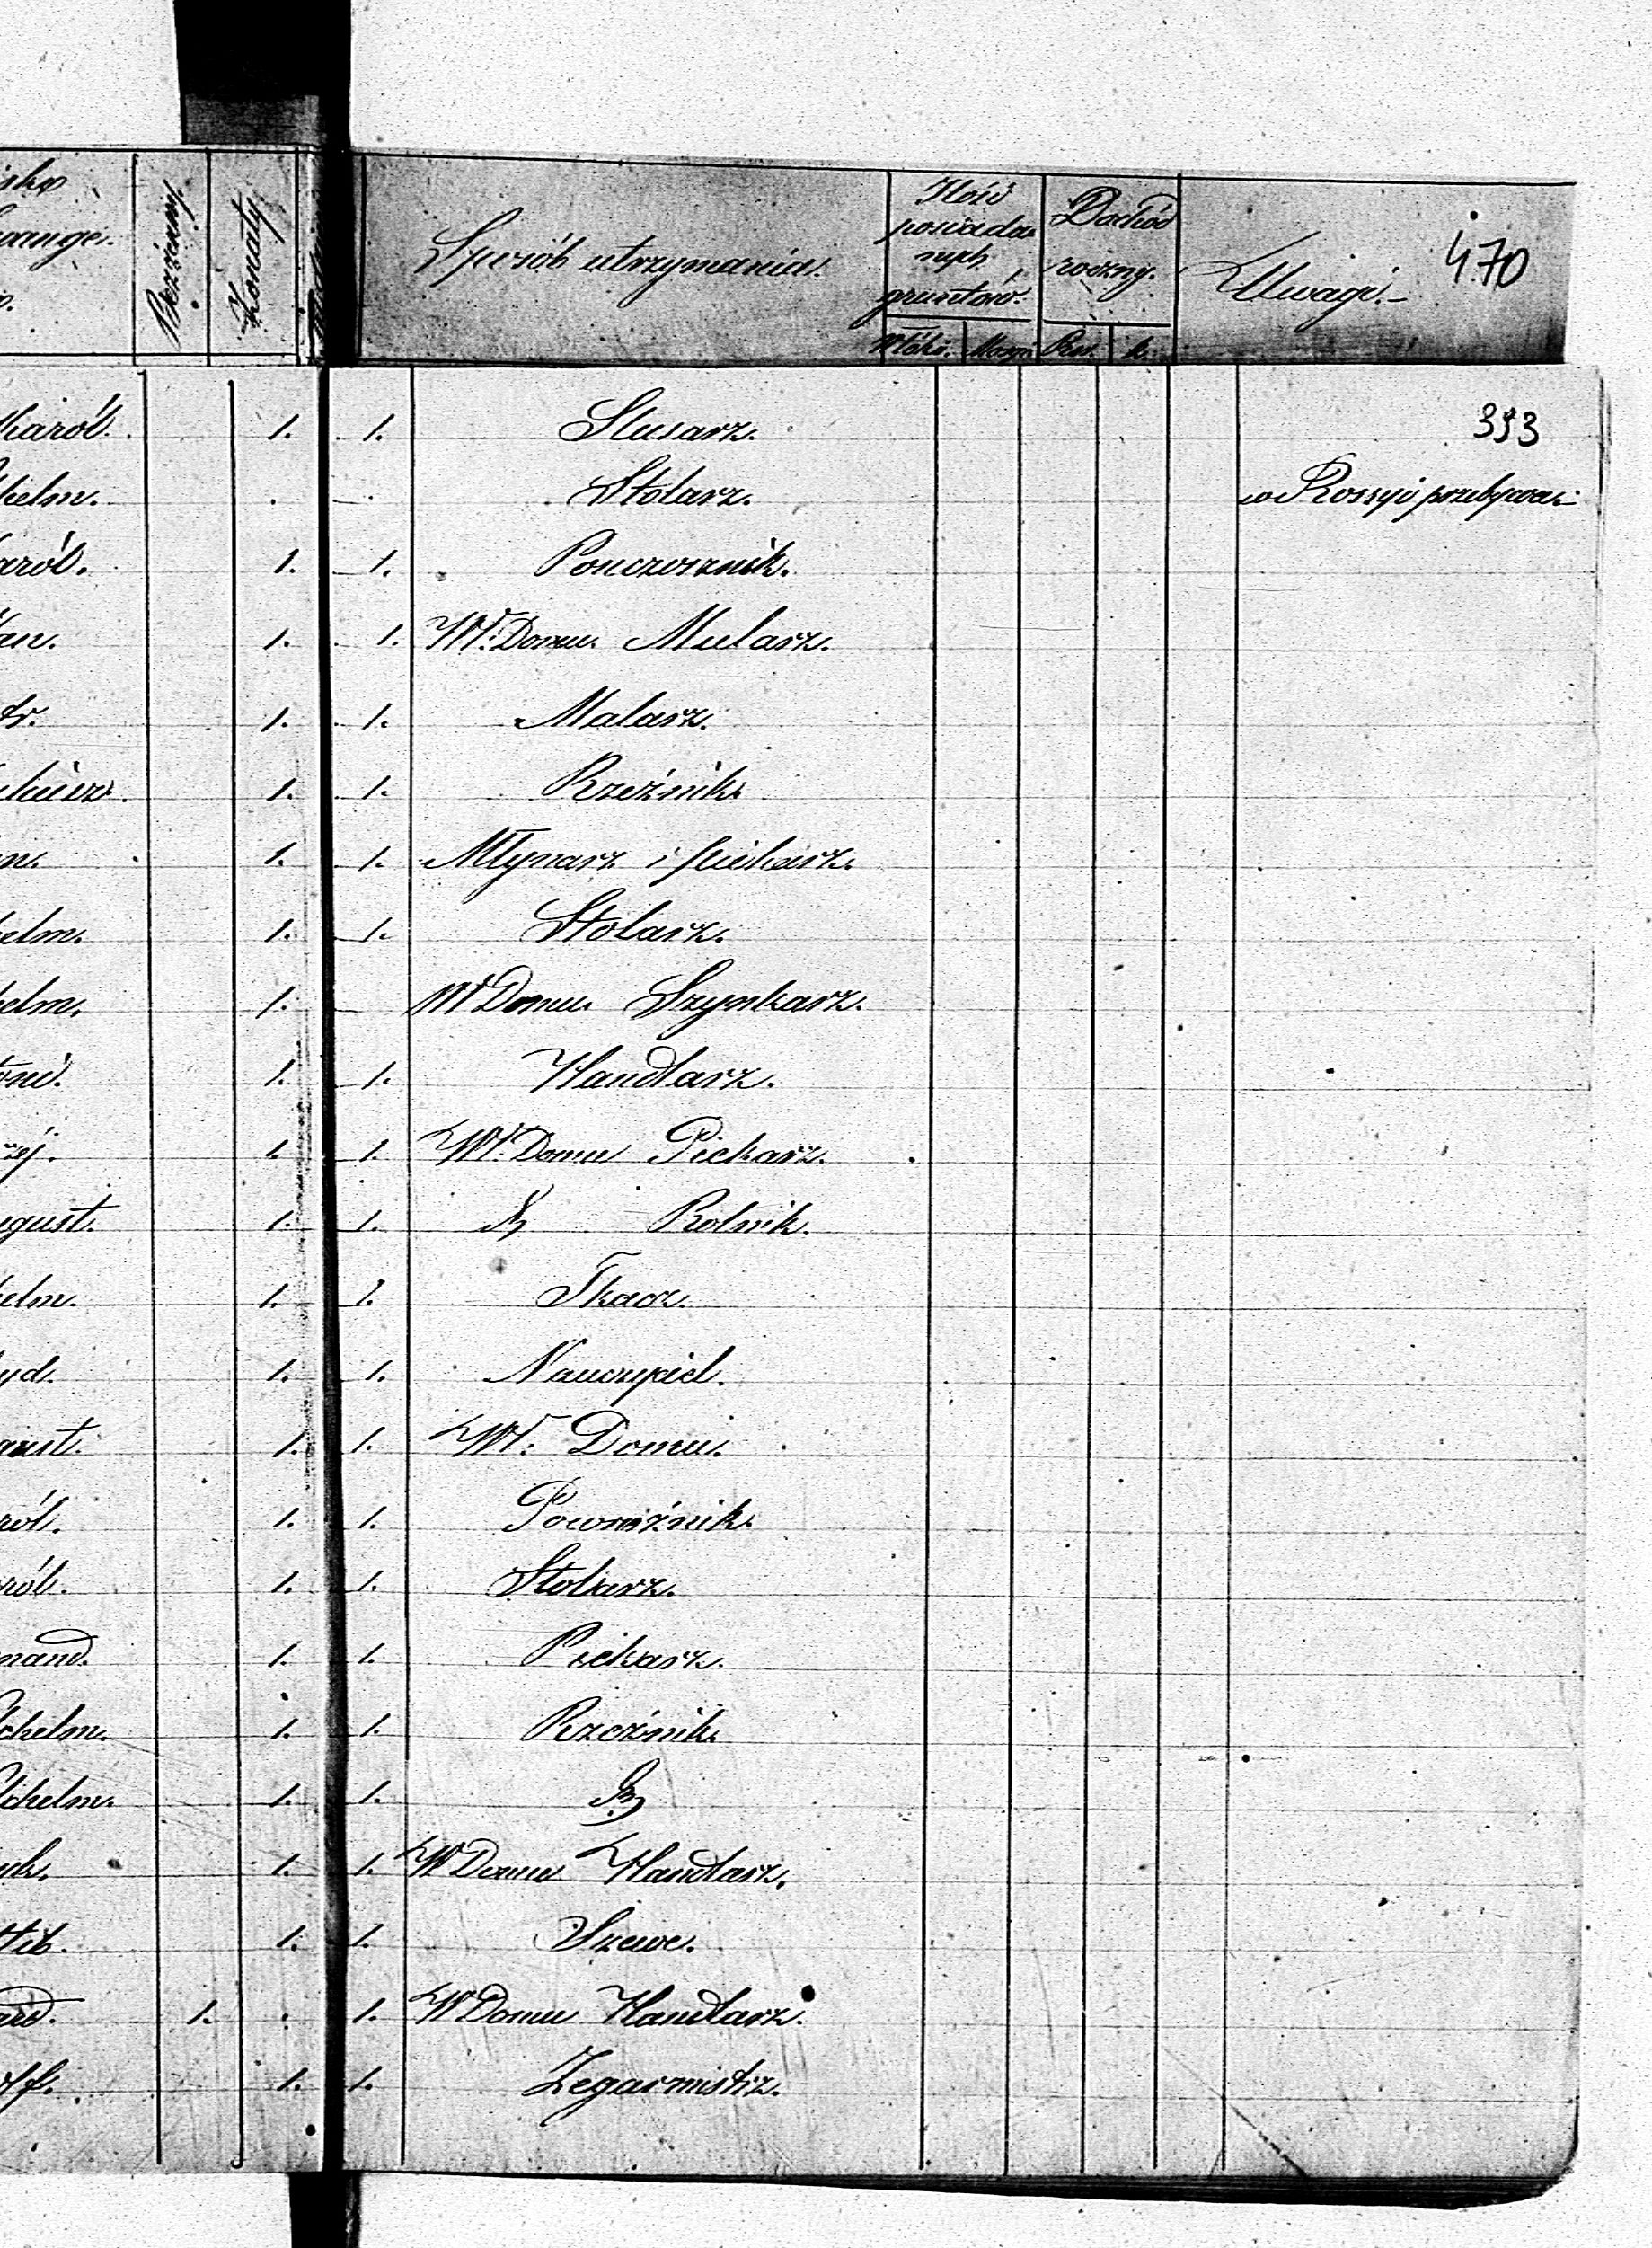 Bezżenny.
Żonaty
Sposób utrzymania.
Ilość posiadanych gruntów.
Dochód roczny.
Uwagi.
470
Włók. Morg. Rsr. k.
Karól. 1. 1. Slusarz. 393
helm. Stolarz. w Rossyi przebywa.
aról. 1. 1. Ponczosznik.
an. 1. 1. Wł: Domu. Mularz.
tr. 1. 1. Malarz.
1. 1. Rzeźnik.
n. 1. 1. Młynarz i piekarz.
elm. 1. 1. Stolarz.
elm. 1. Wł Domu. Szynkarz.
toni. 1. 1. Handlarz.
zéj. 1. 1. Wł: Domu Piekarz.
ugust. 1. 1. Rolnik.
elm. 1. 1. Tkacz.
yd. 1. 1. Nauczyciel.
gust. 1. 1. Wł: Domu.
ról. 1. 1. Powroźnik.
ról. 1. 1. Stolarz.
nand. 1. 1. Piekarz.
helm. 1. 1. Rzeźnik.
lhelm. 1. 1.
yk. 1. 1. Wł Domu Handlarz.
ttib. 1. 1. Szewc.
ard. 1. 1. Wł Domu Handlarz.
olf. 1. 1. Zegarmistrz.